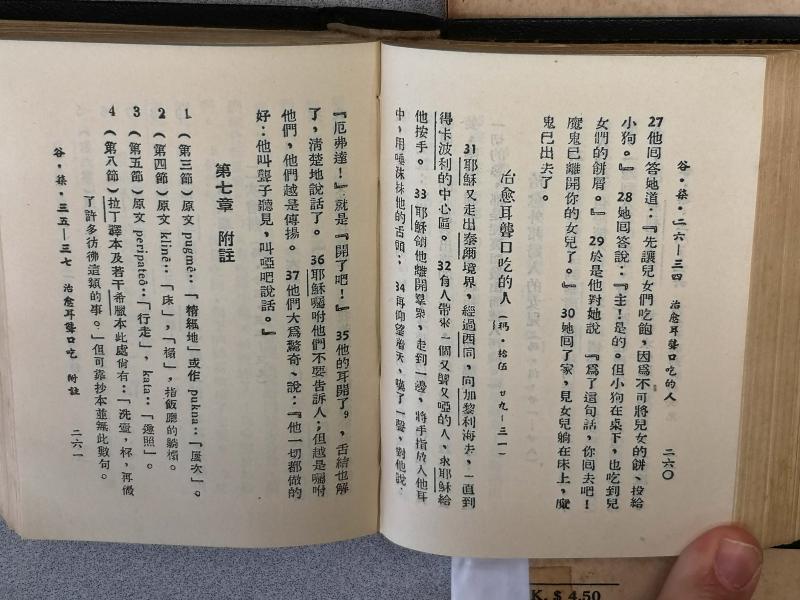 谷·柒·二六—三四　治愈耳聾口吃的人　二六〇
27他回答她道：『先讓兒女們吃飽，因爲不可將兒女的餅、投給
小狗。』 28她回答說：『主！是的。但小狗在桌下，也吃到兒
女們的餅屑。』 29於是他對她說 『爲了這句話，你回去吧！
魔鬼已離開你的女兒了。』 30她回了家，見女兒躺在床上，魔
鬼已出去了。
治愈耳聾口吃的人（瑪·拾伍 廿九—三一）
31耶穌又走出泰爾境界，經過西同，向加黎利海去，一直到
得卡波利的中心區。 32有人帶來一個又聾又啞的人，求耶穌給
他按手。 33耶穌領他離開羣衆，走到一邊，將手指放入他耳
中，用唾沫抹他的舌頭； 34再仰望着天，嘆了一聲，對他說：
『厄弗達！』就是『開了吧！』 35他的耳開了，，舌結也解
了，淸楚地說話了。 36耶穌囑咐他們不要告訴人；但越是囑咐
他們，他們越是傳揚。 37他們大爲驚奇、說：『他一切都做的
好：他叫聾子聽見，叫啞吧說話。』
第七章　附註
1（第三節）原文 pugmē：「精細地」或作 pukna：「屢次」。
2（第四節）原文 klinē：「床」，「榻」，指飯廳的躺榻。
3（第五節）原文 peripateō：「行走」，kata：「遵照」。
4（第八節）拉丁譯本及若干希臘本此處尙有：「洗壺，杯，再做
了許多彷彿這類的事。」但可靠抄本並無此數句。
谷·柒·三五—三七　治愈耳聾口吃　附註　二六一
K. $ 4.50